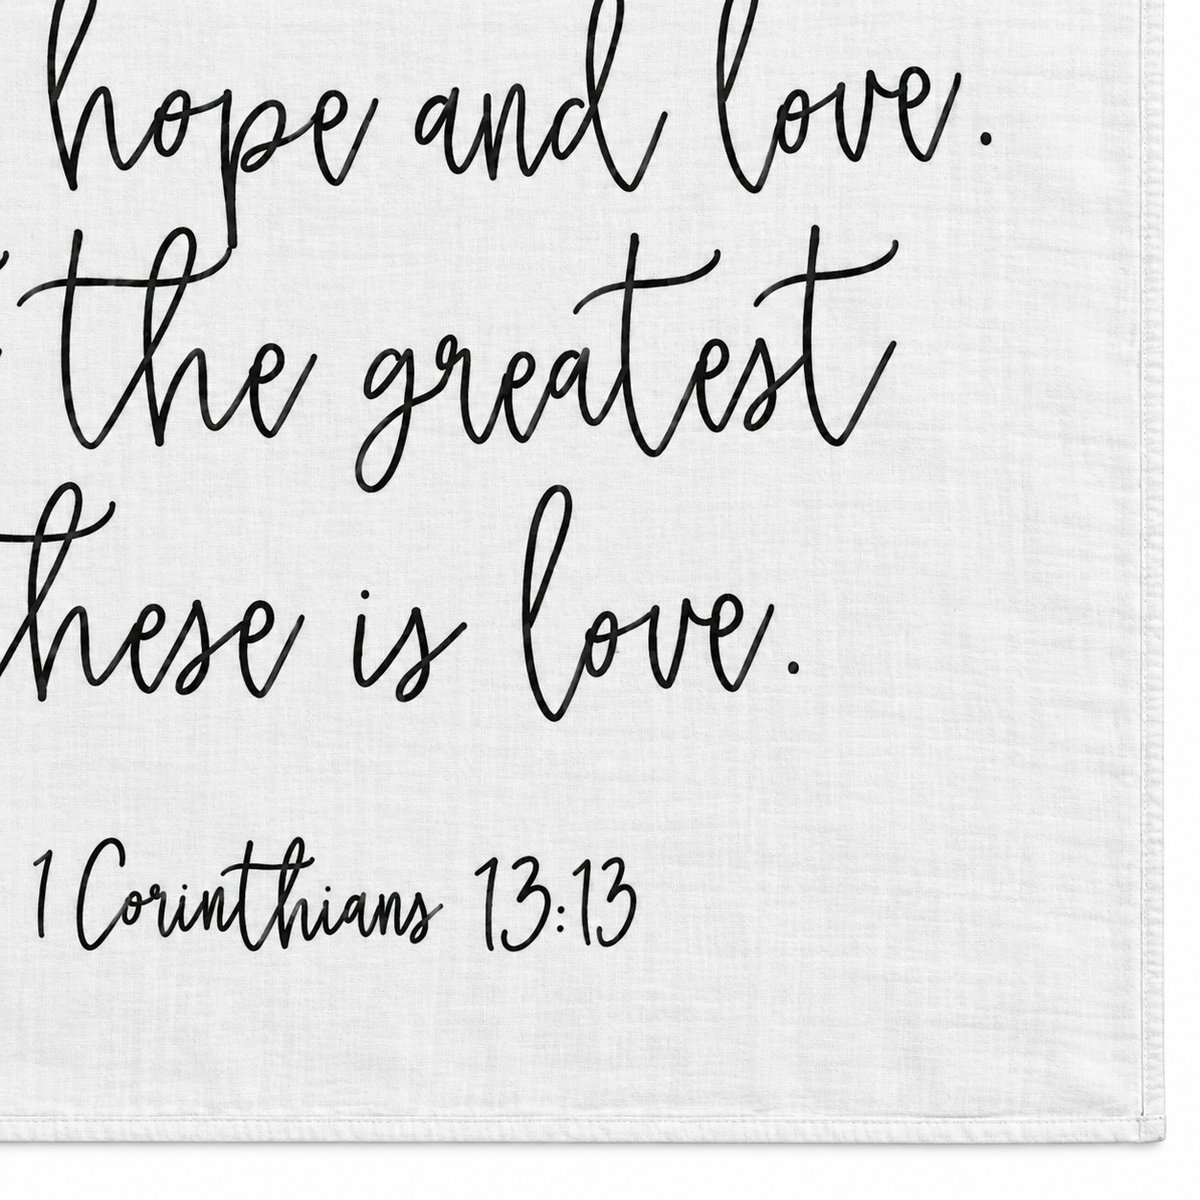 hope and love.
the greatest
these is love.
1 Corinthians 13:13